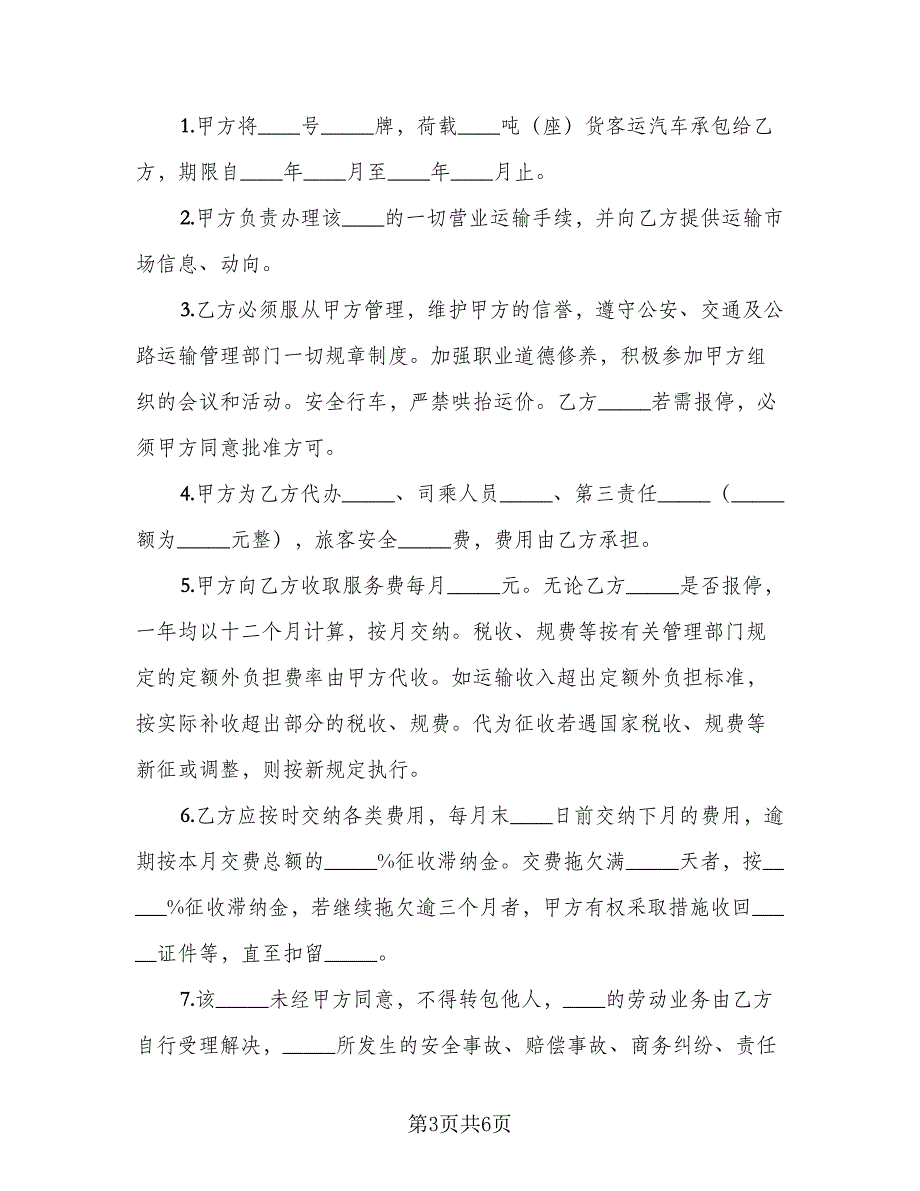 1.甲方将____号_____牌，荷载____吨（座）货客运汽车承包给乙
方，期限自____年____月至____年____月止。
2.甲方负责办理该____的一切营业运输手续，并向乙方提供运输市
场信息、动向。
3.乙方必须服从甲方管理，维护甲方的信誉，遵守公安、交通及公
路运输管理部门一切规章制度。加强职业道德修养，积极参加甲方组
织的会议和活动。安全行车，严禁哄抬运价。乙方_____若需报停，必
须甲方同意批准方可。
4.甲方为乙方代办_____、司乘人员_____、第三责任_____（_____
额为_____元整），旅客安全_____费，费用由乙方承担。
5.甲方向乙方收取服务费每月_____元。无论乙方_____是否报停，
一年均以十二个月计算，按月交纳。税收、规费等按有关管理部门规
定的定额外负担费率由甲方代收。如运输收入超出定额外负担标准，
按实际补收超出部分的税收、规费。代为征收若遇国家税收、规费等
新征或调整，则按新规定执行。
6.乙方应按时交纳各类费用，每月末____日前交纳下月的费用，逾
期按本月交费总额的_____%征收滞纳金。交费拖欠满_____天者，按__
___%征收滞纳金，若继续拖欠逾三个月者，甲方有权采取措施收回___
__证件等，直至扣留_____。
7.该_____未经甲方同意，不得转包他人，____的劳动业务由乙方
自行受理解决，_____所发生的安全事故、赔偿事故、商务纠纷、责任
第3页共6页